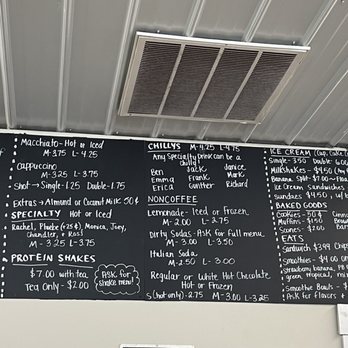 Macchiato - Hot or Iced
M-3.75 L-4.25
Cappuccino
M-3.25 L-3.75
Shot → Single 1.25 Double 1.75
Extras → Almond or Coconut Milk 50¢
SPECIALTY Hot or Iced
Rachel, Phoebe (+25¢), Monica, Joey,
Chandler, + Ross
M-3.25 L-3.75
PROTEIN SHAKES
$7.00 with tea
Tea Only - $2.00
Ask for
shake menu!
CHILLYS M-4.25 L-4.75
Any Specialty Drink can be a
chilly
Ben Jack Janice
Emma Frank Mark
Erica Gunther Richard
NONCOFFEE
Lemonade - Iced or frozen
M-2.00 L-2.75
Dirty Sodas - Ask for full menu
M-3.00 L-3.50
Italian Soda
M-2.50 L-3.00
Regular or White Hot Chocolate
Hot or Frozen
S (hot only) - 2.75 M-3.00 L-3.25
ICE CREAM (Cup, Cake C
Single - 3.50 Double
Milkshakes - $4.50
Banana Split - $7.00
Ice Cream Sandwiches
sundaes - $4.50
BAKED GOODS
Cookies - 50¢
Muffins - $1.50
Scones - $2.00
EATS
Sandwich $3.99 Chips
Smoothies - $4.00
strawberry banana,
green, tropical,
Smoothie Bowls -
Ask for flavors +